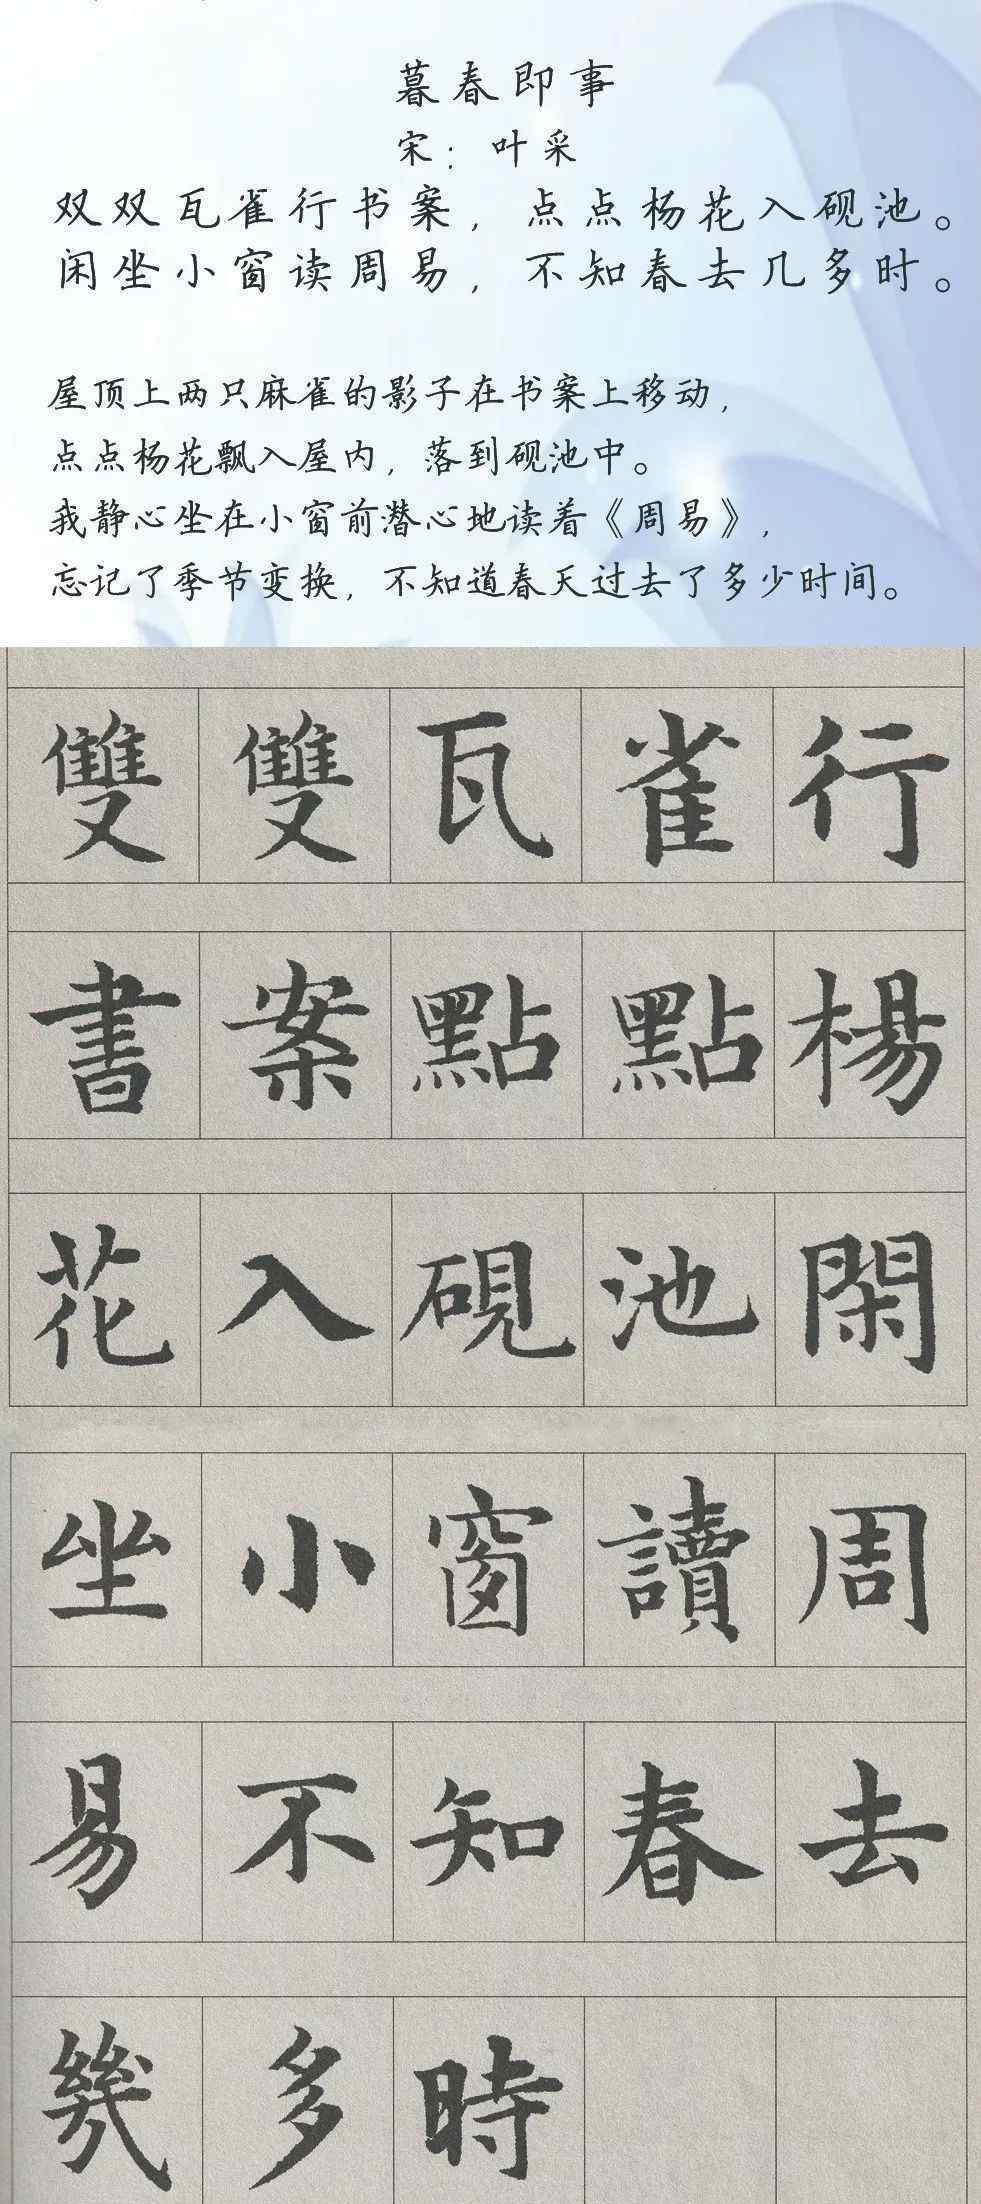 暮春即事
宋：叶采
双双瓦雀行书案，点点杨花入砚池。
闲坐小窗读周易，不知春去几多时。
屋顶上两只麻雀的影子在书案上移动，
点点杨花飘入屋内，落到砚池中。
我静心坐在小窗前潜心地读着《周易》，
忘记了季节变换，不知道春天过去了多少时间。
雙雙瓦雀行
書案點點楊
花入硯池閑
坐小窗讀周
易不知春去
幾多時